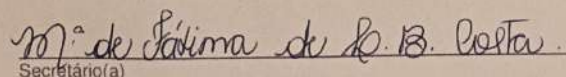 Mª de Fátima de L. B. Costa.
Secretário(a)